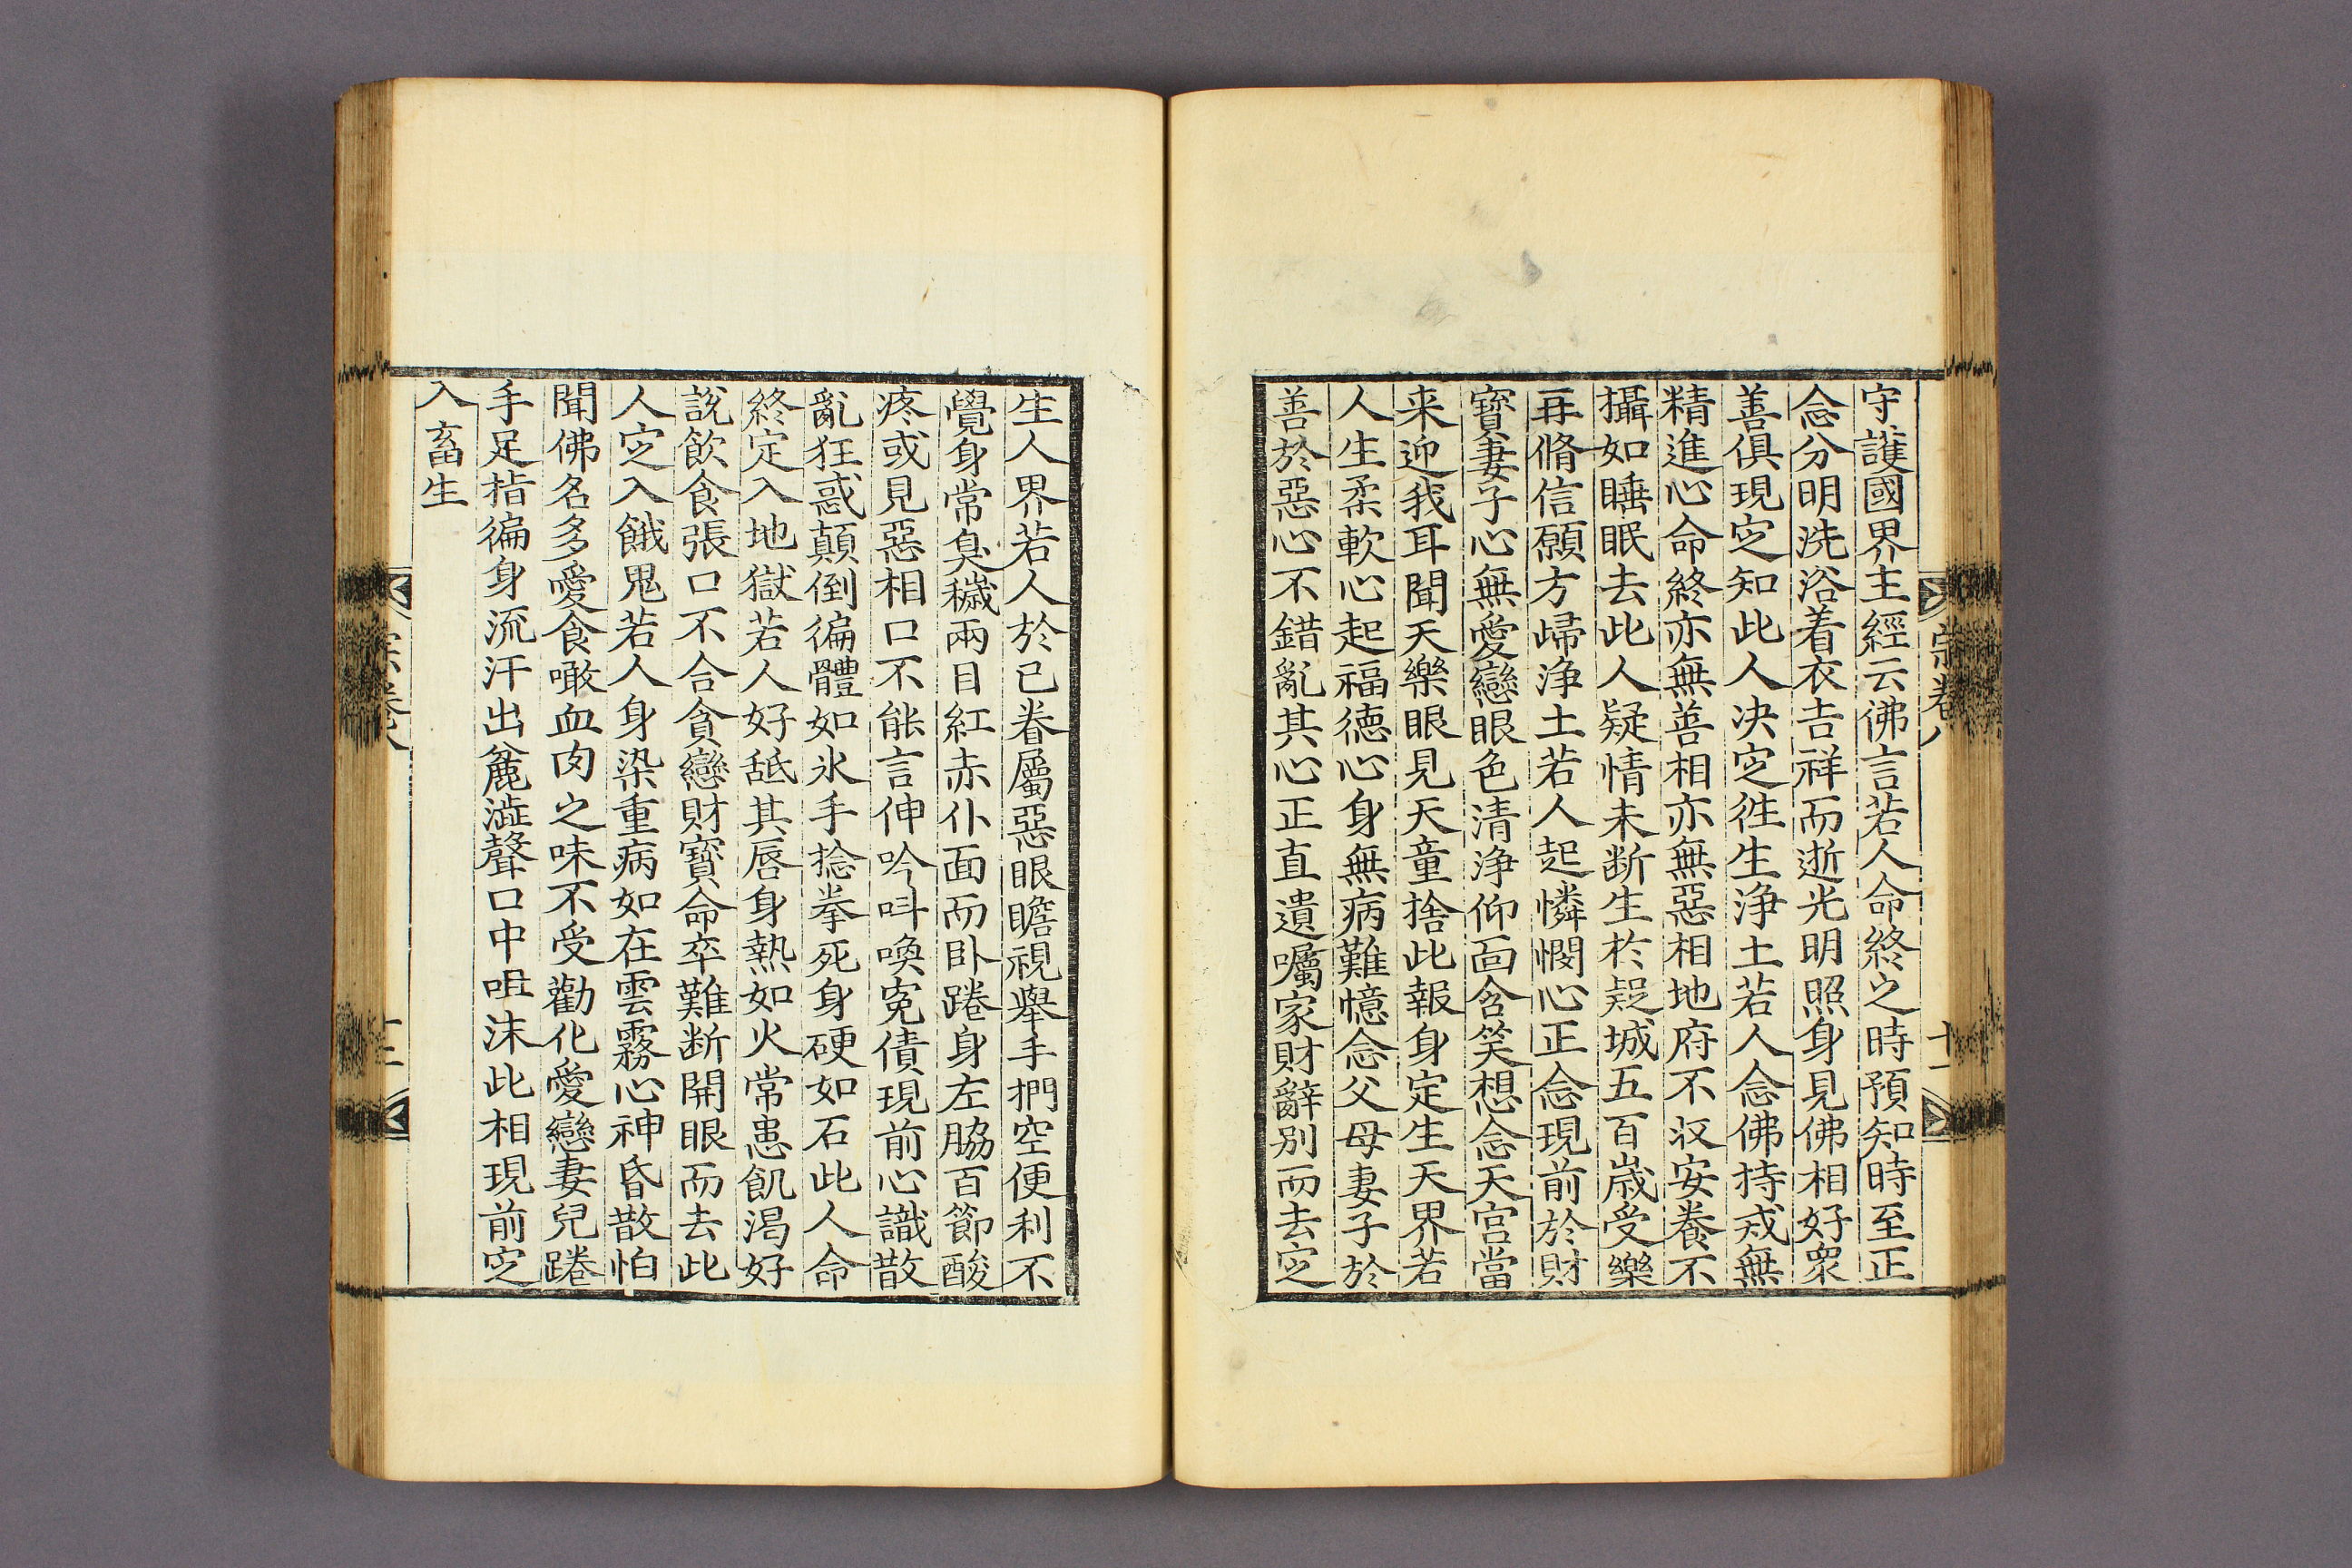 守護國界主經云佛言若人命終之時預知時至正
念分明洗浴着衣吉祥而逝光明照身見佛相好衆
善俱現㝎知此人决㝎徃生浄土若人念佛持戒無
精進心命終亦無善相亦無惡相地府不収安養不
攝如睡眠去此人疑情未断生扵疑城五百歳受樂
再脩信願方歸浄土若人起憐憫心正念現前於財
寳妻子心無愛戀眼色清浄仰面含笑想念天宫當
来迎我耳聞天樂眼見天童捨此報身定生天界若
人生柔軟心起福德心身無病難憶念父母妻子於
善於惡心不錯亂其心正直遺囑家財辭别而去㝎
宗卷八
十一
生人界若人於已眷屬惡眼瞻視舉手捫空便利不
覺身常臭穢兩目紅赤仆面而卧踡身左脇百節酸
疼或見惡相口不能言伸吟叫喚寃債現前心識散
亂狂惑顛倒徧體如氷手捻拳死身硬如石此人命
終定入地獄若人好舐其唇身熱如火常患飢渴好
說飲食張口不合貪戀財寳命卒難断開眼而去此
人㝎入餓鬼若人身染重病如在雲霧心神昏散怕
聞佛名多愛食噉血肉之味不受勸化愛戀妻兒踡
手足指徧身流汗出麄澁聲口中咀沫此相現前㝎
入畜生